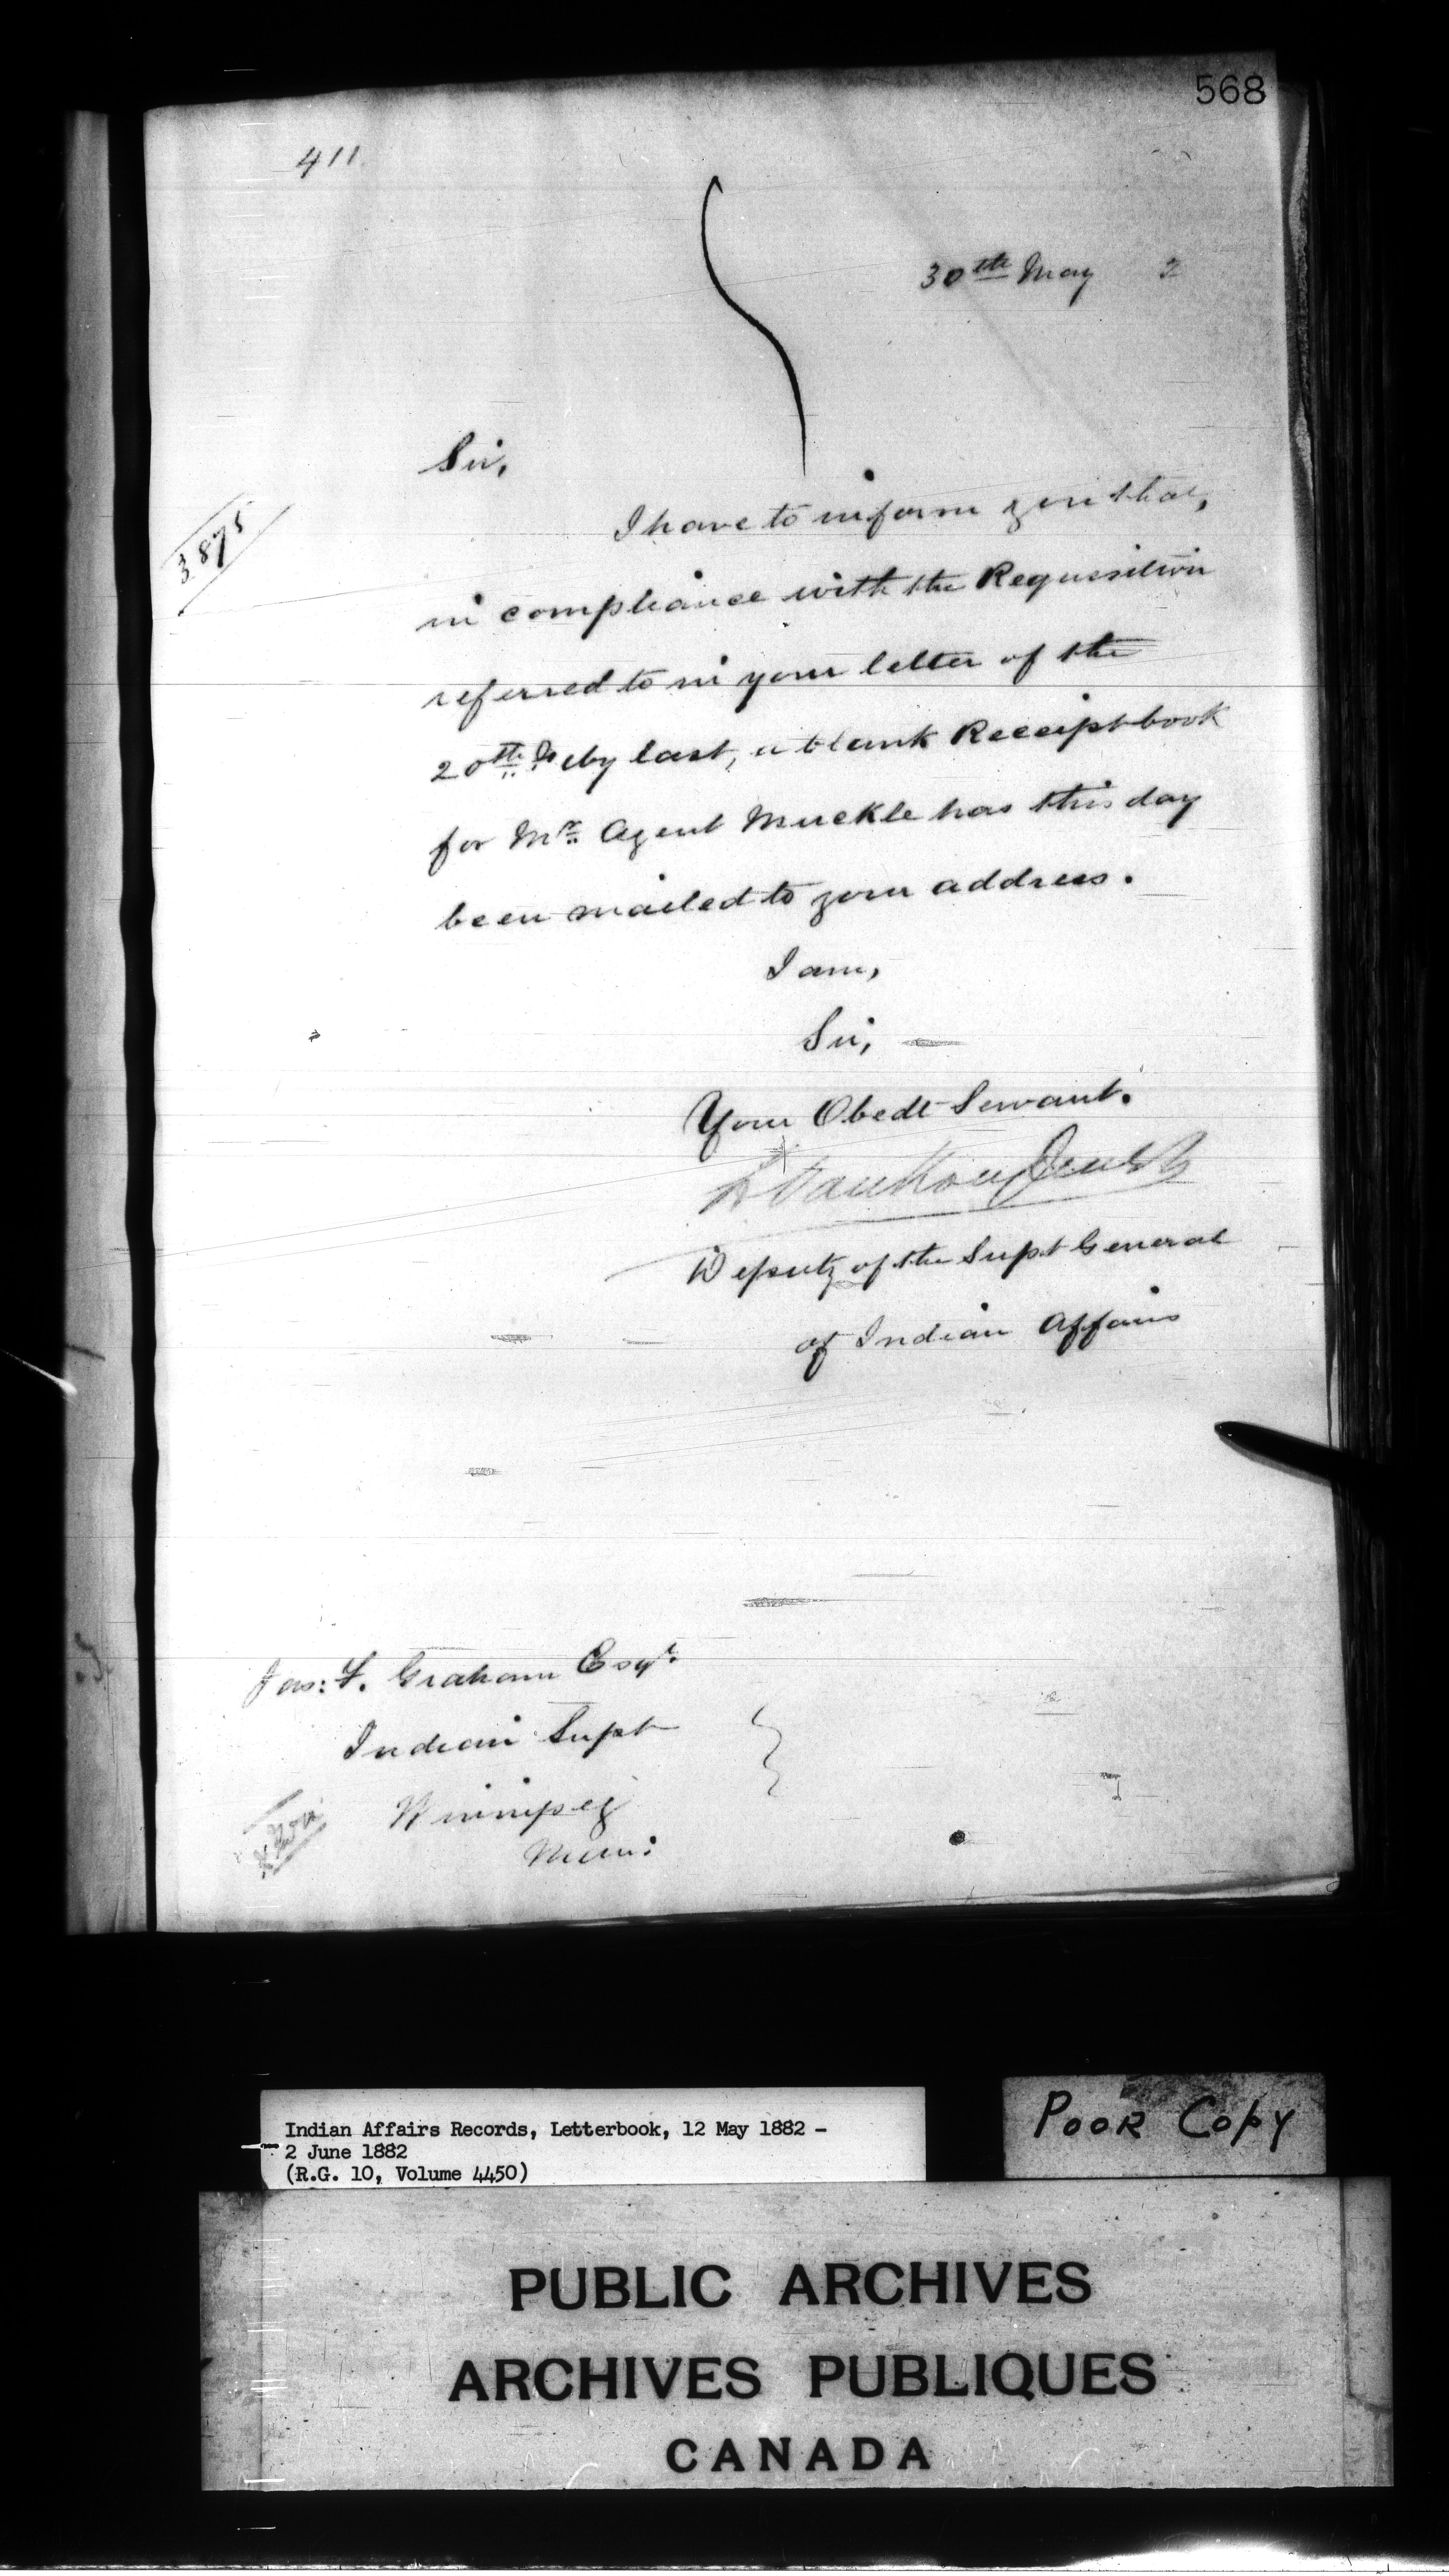 568
411
30th May 2
Sir,
3875
I have to inform you that,
in compliance with the Requisition
referred to in your letter of the
20th Feby last, a blank Receipt book
for Mr. Agent Muckle has this day
been mailed to your address.
I am,
Sir,
Your Obedt Servant.
L VanKoughnet
Deputy of the Supt General
of Indian Affairs
Jas: F. Graham Esqr.
Indian Supt
Winnipeg
Man:
Indian Affairs Records, Letterbook, 12 May 1882 –
2 June 1882
(R.G. 10, Volume 4450)
POOR COPY
PUBLIC ARCHIVES
ARCHIVES PUBLIQUES
CANADA